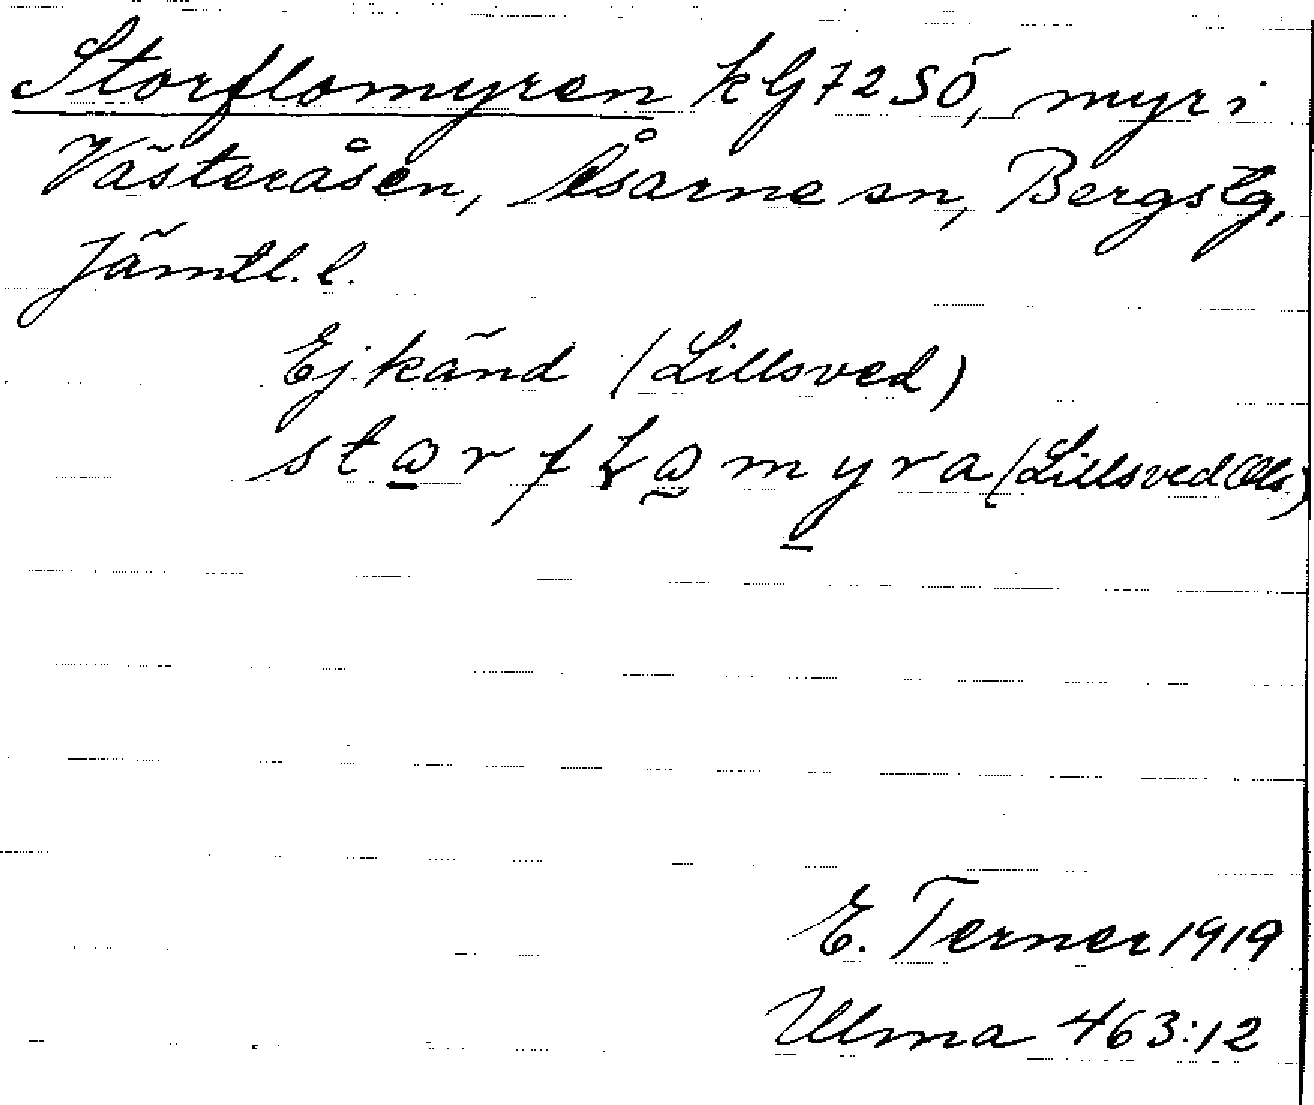 Storflomyren kG 72 SÖ, myr i
Västeråsen, Åsarne sn, Bergs tg,
Jämtl. l.
Ej känd (Lillsved)
starfLamyra (Lillsved Olls)
E. Terner 1919
Ulma 463:12